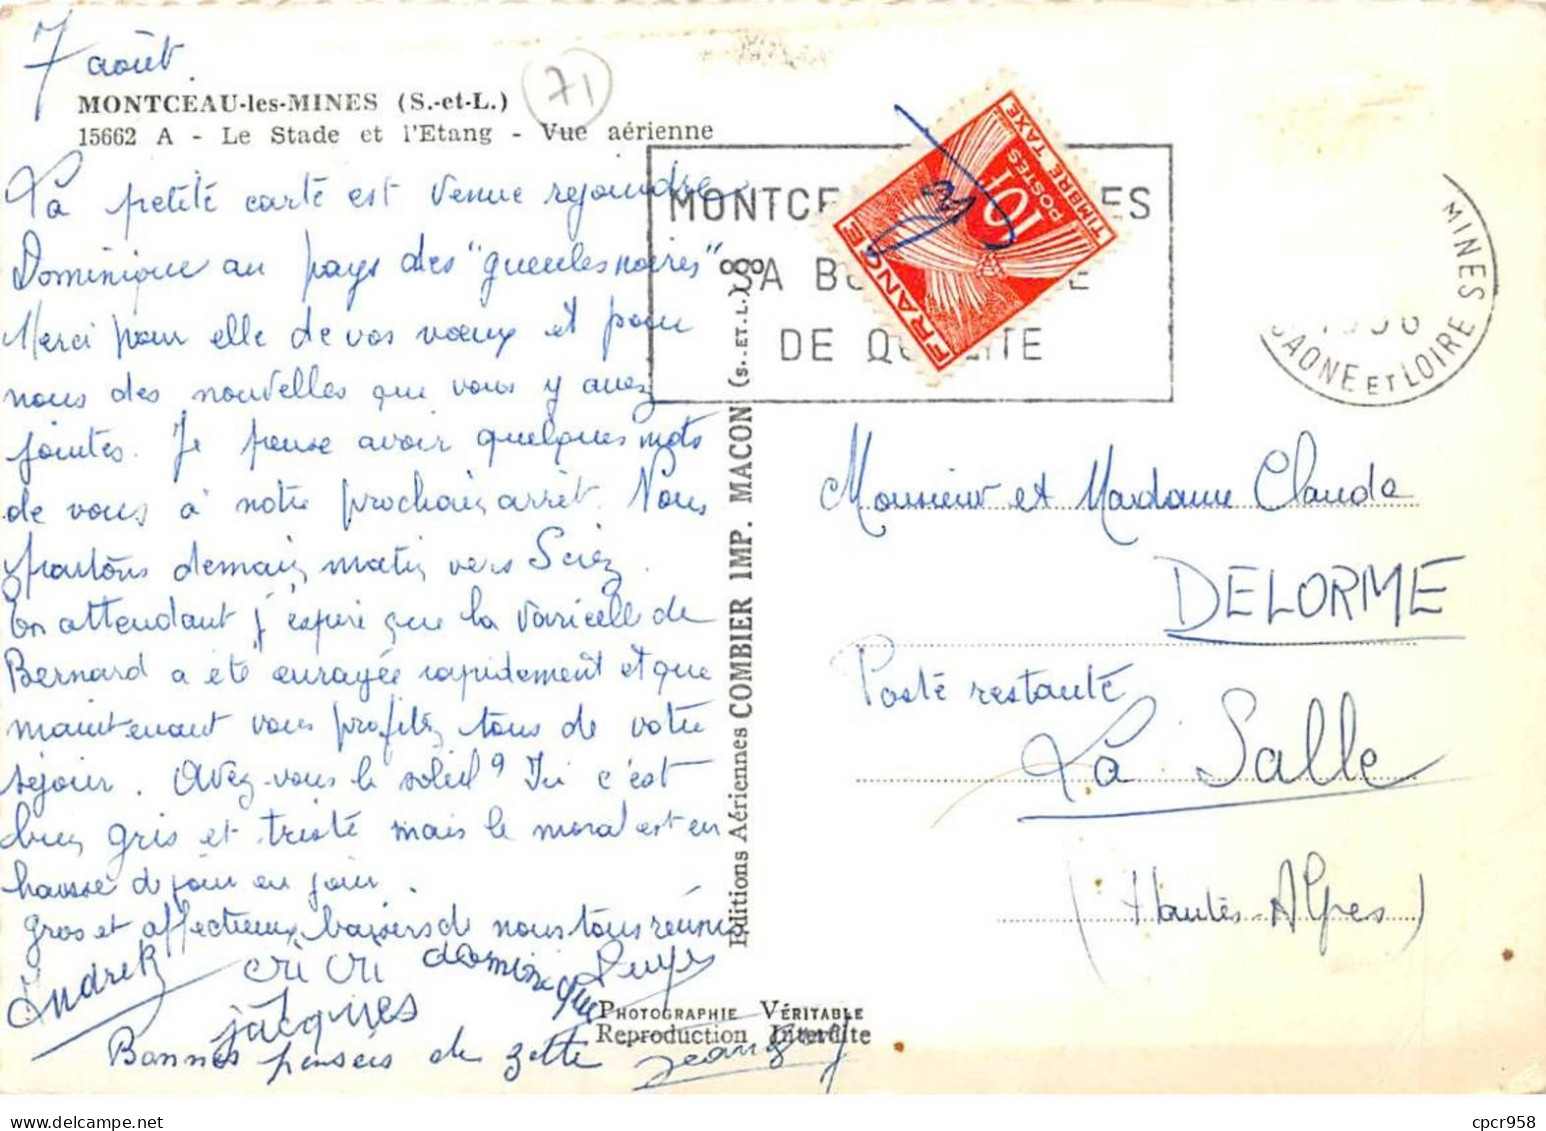 7 août
71
MONTCEAU-les-MINES (S.-et-L.)
15662 A - Le Stade et l'Etang - Vue aérienne
La petite carte est venue rejoindre
Dominique au pays des "gueules noires"
Merci pour elle de vos vœux et pour
nous des nouvelles que vous y avez
jointes. Je pense avoir quelques mots
de vous à notre prochain arrêt. Nous
partons demain matin vers Sciez.
En attendant j'espère que la varicelle de
Bernard a été enrayée rapidement et que
maintenant vous profitez tous de votre
séjour. Avez-vous le soleil? Ici c'est
bien gris et triste mais le moral est en
hausse de jour en jour.
Gros et affectueux baisers de nous tous réunis
cri cri
dominique
jacques
Bonnes pensées de
Editions Aériennes COMBIER IMP. MACON (S.-ET-L.)
PHOTOGRAPHIE VÉRITABLE
Reproduction Interdite
MONTCE ES
SA BO E
DE QU ITE
FRANCE
10F
POSTES
TIMBRE TAXE
MINES
SAONE ET LOIRE
Monsieur et Madame Claude
DELORME
Poste restante
La Salle
(Hautes-Alpes)
delcampe.net
cpcr958